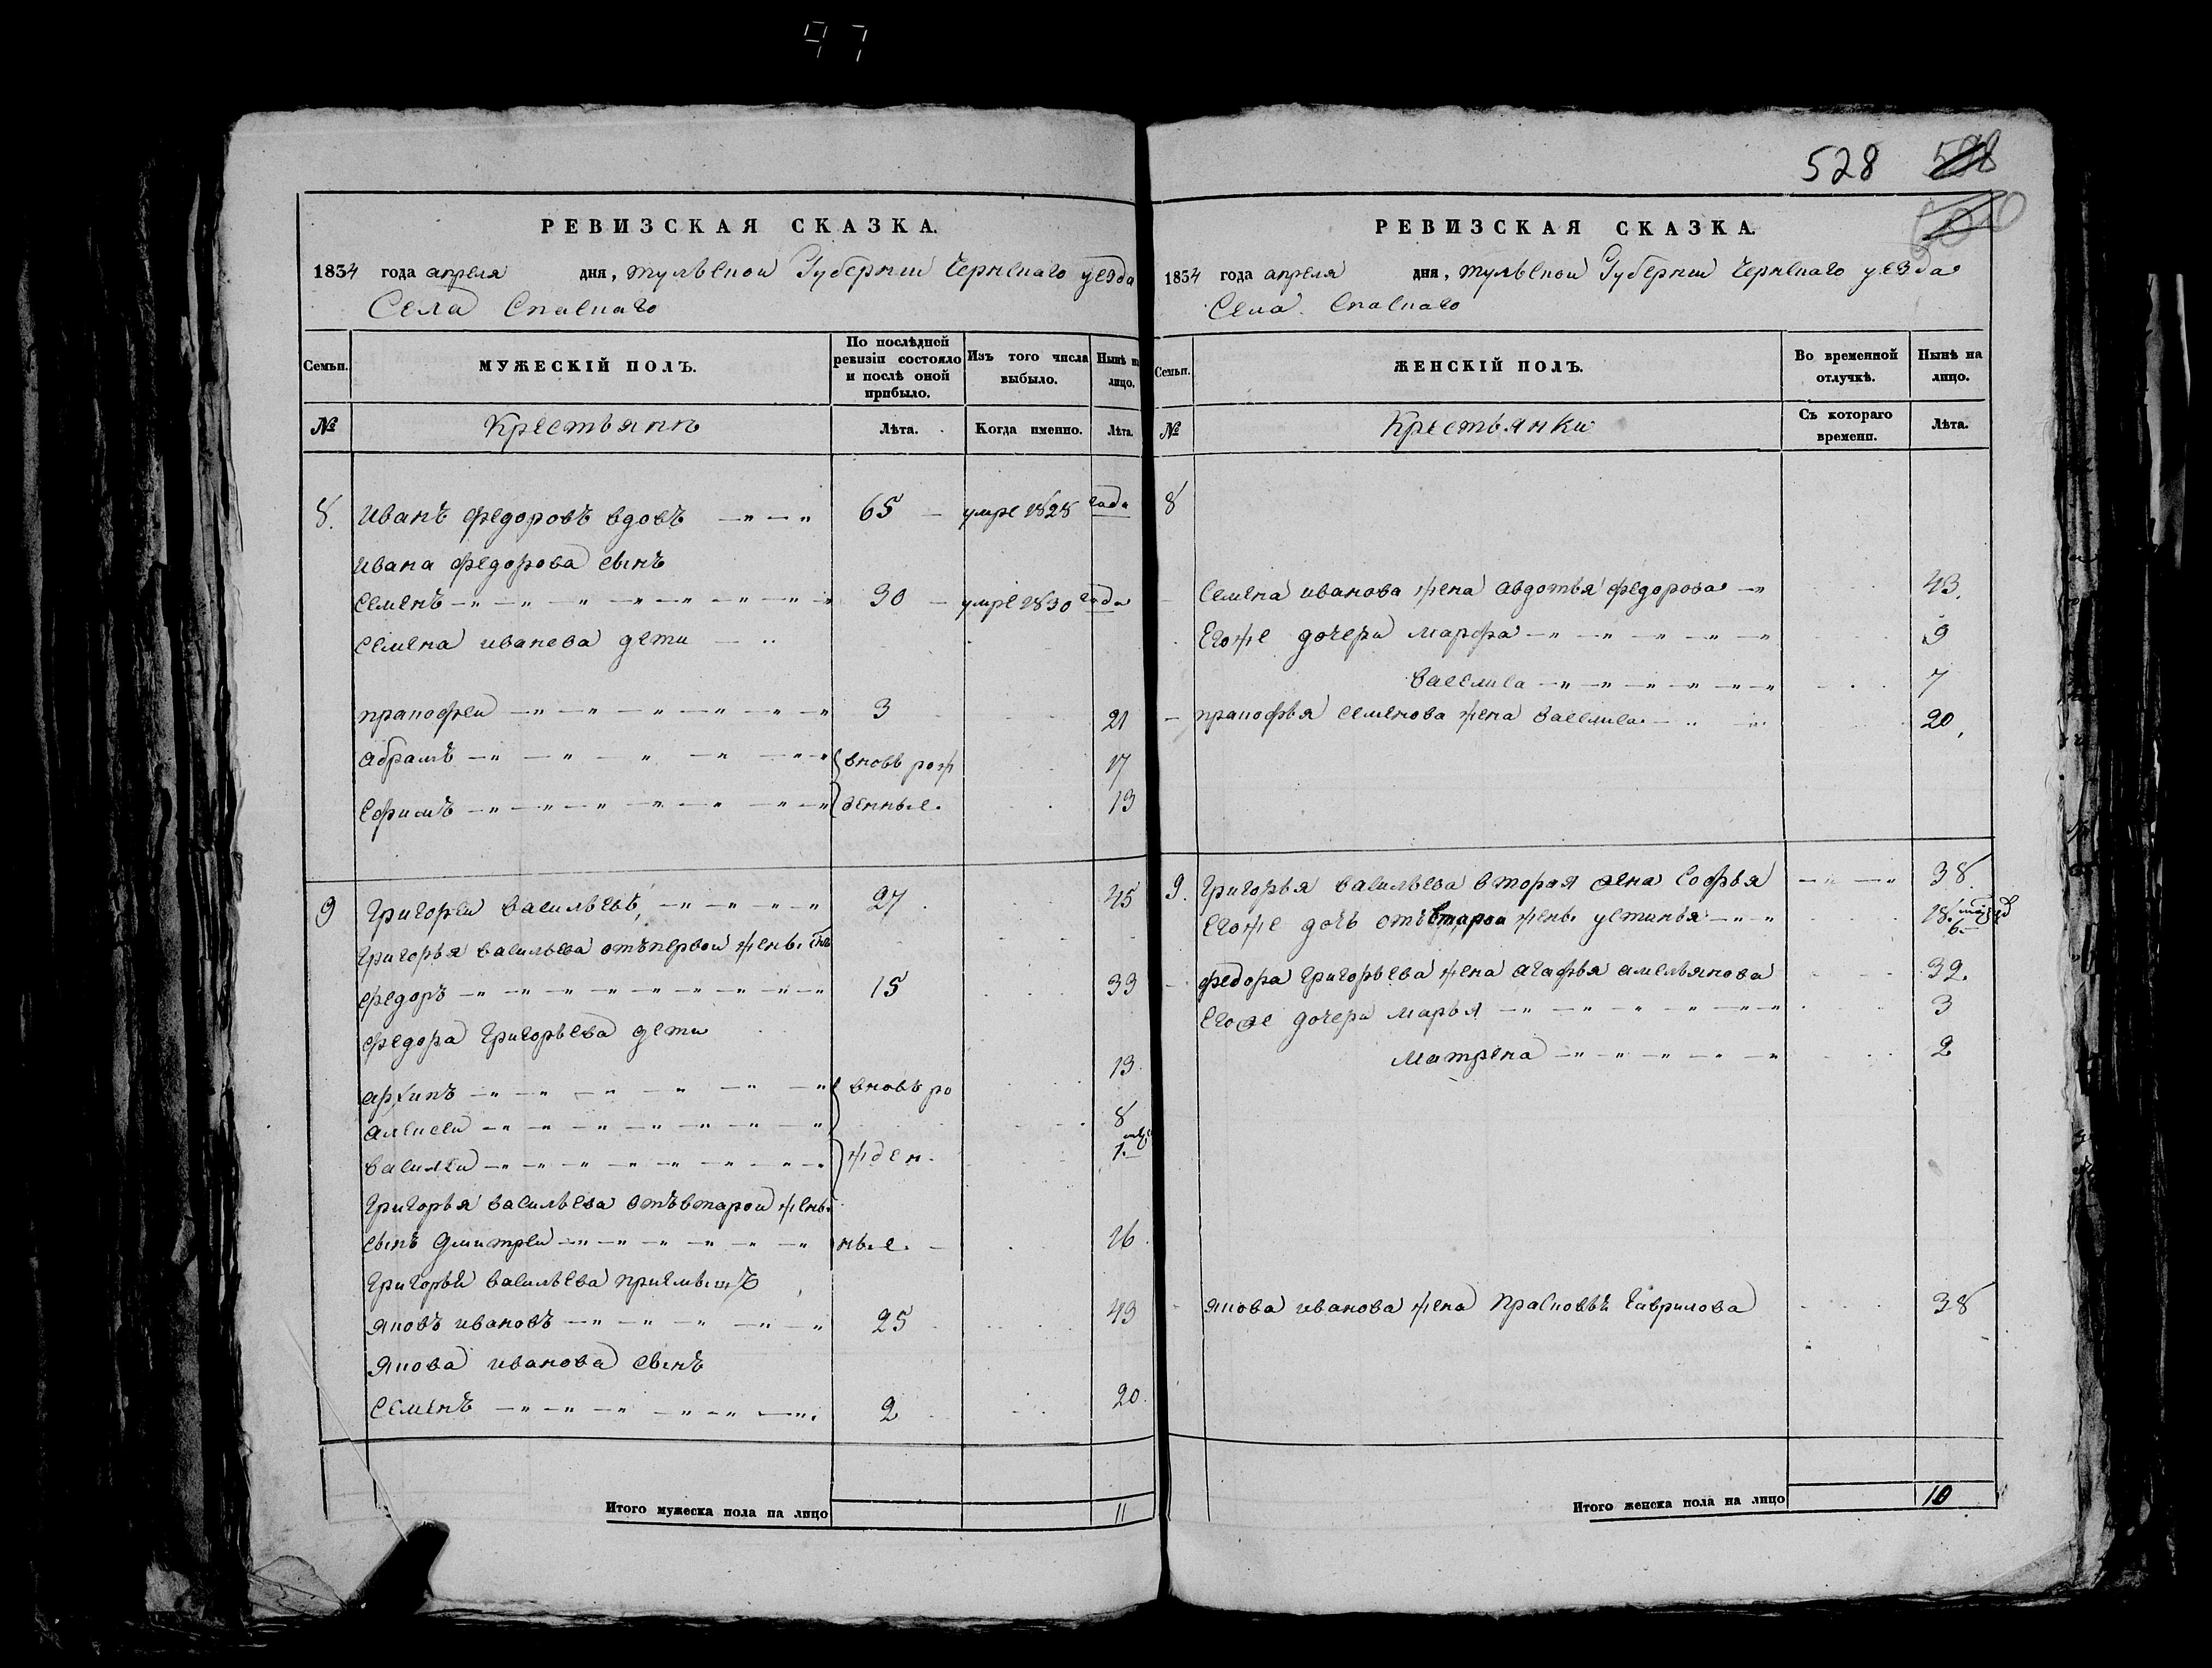 97
РЕВИЗСКАЯ СКАЗКА.
1834 года апреля дня, тульской Губернии Чернскаго уезда
Села Спаскаго
Семьи. МУЖЕСКІЙ ПОЛЪ. По послѣдней ревизіи состояло и послѣ оной прибыло. Изъ того числа выбыло. Нынѣ на лицо.
№ Крестьяне Лѣта. Когда именно. Лѣта.
8. Иванъ федоровъ вдовъ 65 умре 1828 года
ивана федорова сынъ
семенъ 30 умре 1830 года
семена иванова дети
пракофеи 3 21
абрамъ вновь рож 17
ефимъ денные. 13
9 Григореи васильевъ, 27 45
Григорья васильева отъ первои жены сынъ
федоръ 15 33
федора Григорьева дети
архипъ вновь ро 13
алексеи 8
василеи жден. 1. мец
Григорья васильева отъ втарои жены
сынъ Дмитреи ные. 16
Григорья васильева приемышъ
яковъ ивановъ 25 43
якова иванова сынъ
семенъ 2 20
Итого мужеска пола на лицо 11
528
РЕВИЗСКАЯ СКАЗКА.
1834 года апреля дня, тульской Губернии Чернскаго уезда
Села Спаскаго
Семьи. ЖЕНСКІЙ ПОЛЪ. Во временной отлучкѣ. Нынѣ на лицо.
№ Крестьянки Съ котораго времени. Лѣта.
8
семена иванова жена авдотья федорова 43.
Егоже дочери марфа 9
васелиса 7
пракофья семенова жена васелиса 20,
9. Григорья васильева вторая жена Софья 38.
Егоже дочь отъ втарои жены устинья 18. 6.
федора григорьева жена агафья амельянова 32.
Егоже дочери марья 3
Матрена 2
якова иванова жена прасковья Гаврилова 38
Итого женска пола на лицо 10